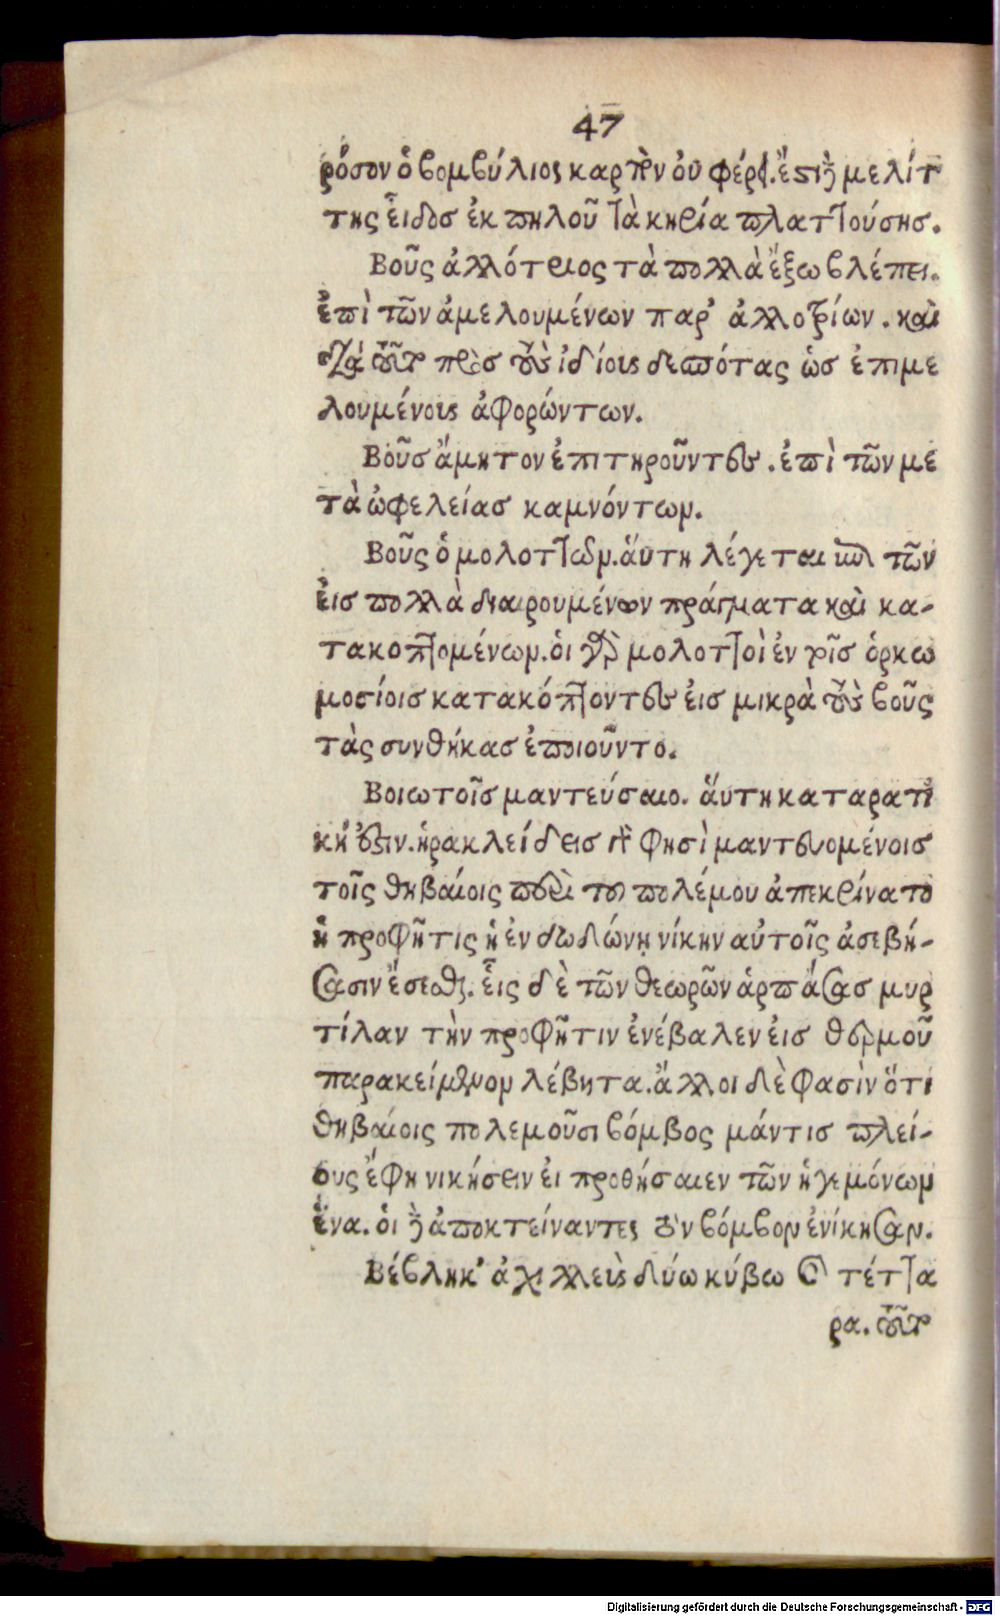 47
ρόσον ὁ βομβύλιος καρπὸν οὐ φέρει. ἔστι δὲ μελίτ
της εἶδος ἐκ πηλοῦ τὰ κηρία πλαττούσης.
Βοῦς ἀλλότριος τὰ πολλὰ ἔξω βλέπει.
ἐπὶ τῶν ἀμελουμένων παρ' ἀλλοτρίων. καὶ
διὰ τοῦτο πρὸς τοὺς ἰδίους δεσπότας ὡς ἐπιμε
λουμένους ἀφορώντων.
Βοῦς ἄμητον ἐπιτηροῦντες. ἐπὶ τῶν με
τὰ ὠφελείας καμνόντων.
Βοῦς ὁ μολοττῶν. ἅυτη λέγεται ἐπὶ τῶν
ἐις πολλὰ διαιρουμένων πράγματα καὶ κα-
τακοπτομένων. ὁι γὰρ μολοττοὶ ἐν τοῖς ὁρκω
μοσίοις κατακόπτοντες ἐις μικρὰ τοὺς βοῦς
τὰς συνθήκας ἐποιοῦντο.
Βοιωτοῖς μαντεύσαιο. ἅυτη καταρατι
κή ἐστιν. ἡρακλείδεις γάρ φησὶ μαντευομένοις
τοῖς θηβαίοις περὶ του πολέμου ἀπεκρίνατο
ἡ προφῆτις ἡ ἐν δωδώνῃ νίκην αὐτοῖς ἀσεβή-
σασιν ἔσεσθαι. εἷς δὲ τῶν θεωρῶν ἁρπάσας μυρ
τίλαν τὴν προφῆτιν ἐνέβαλεν ἐις θερμοῦ
παρακείμενον λέβητα. ἄλλοι δὲ φασὶν ὅτι
θηβαίοις πολεμοῦσι βόμβος μάντις πλεί-
ους ἔφη νικήσειν ἐι προθήσαιεν τῶν ἡγεμόνων
ἕνα. ὁι δὲ ἀποκτείναντες τὸν βόμβον ἐνίκησαν.
Βέβληκ' ἀχιλλεὺς δύω κύβω καὶ τέττα
ρα. τοῦτο
Digitalisierung gefördert durch die Deutsche Forschungsgemeinschaft - DFG